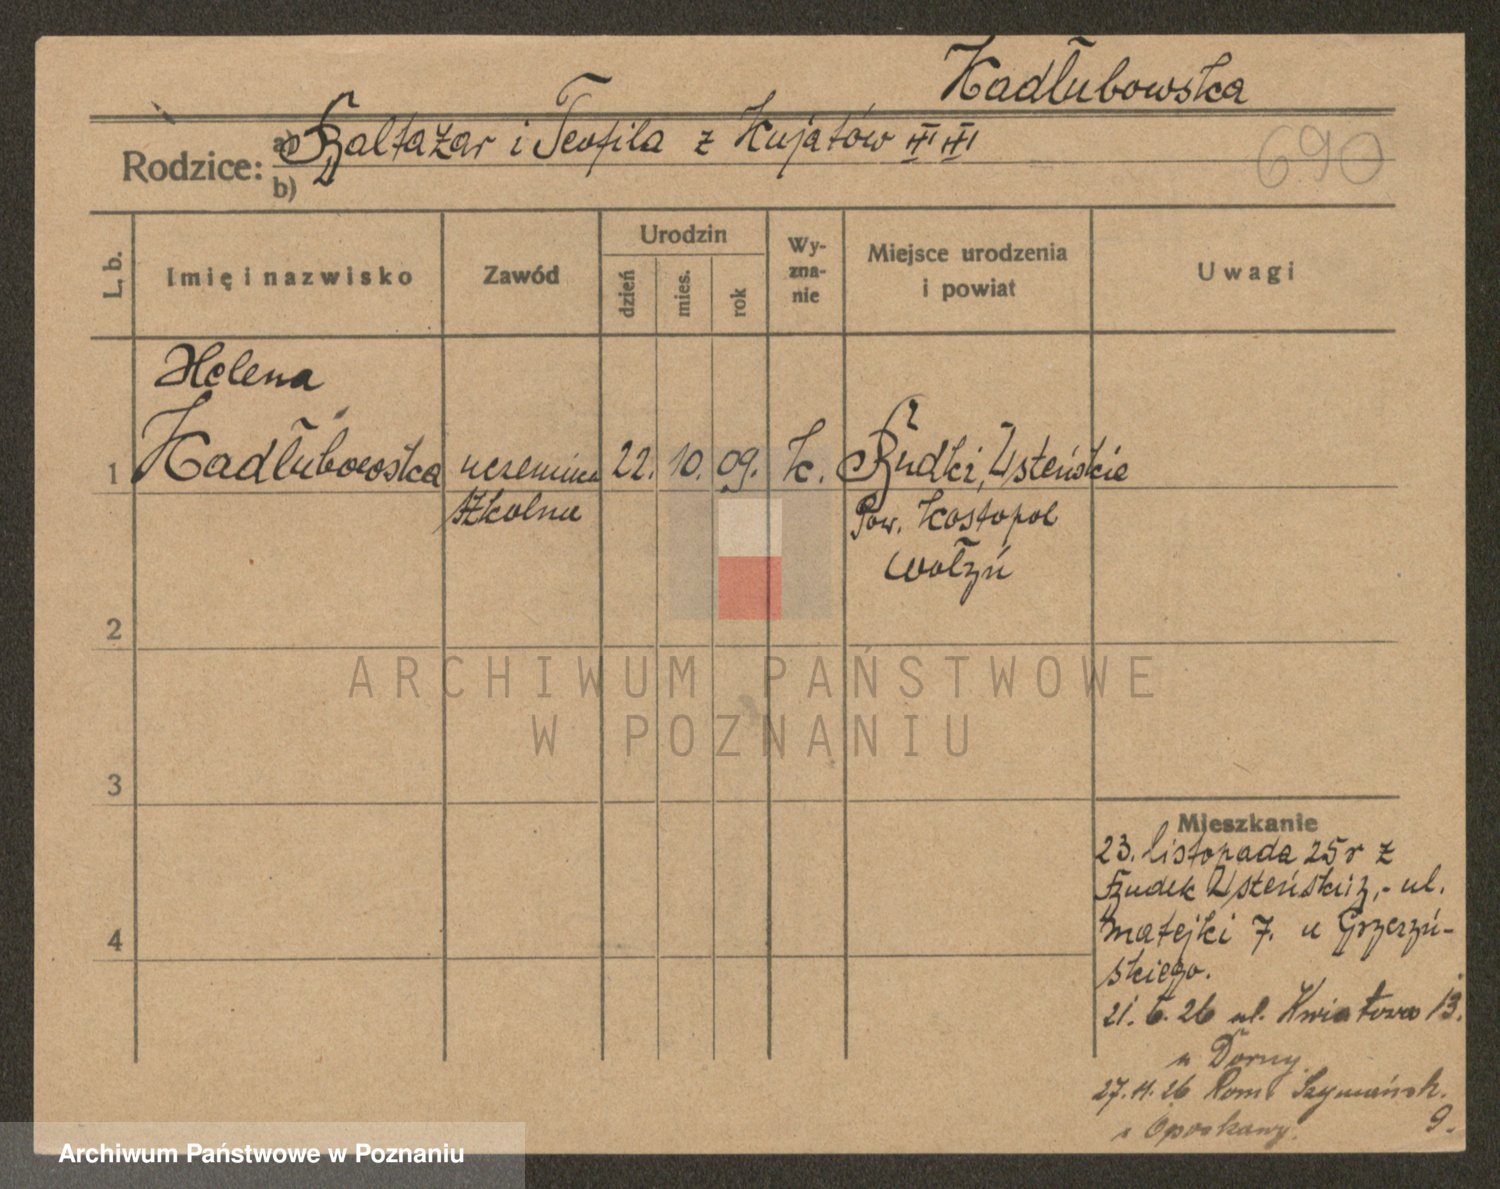 Kadłubowska
Rodzice: a) Baltazar i Teofila z Kujatów
b)
690
L. b.
Imię i nazwisko
Zawód
Urodzin
dzień
mies.
rok
Wy-
zna-
nie
Miejsce urodzenia
i powiat
Uwagi
Helena
1 Kadłubowska uczenica 22. 10. 09. k. Rudki, Usteńskie
szkolna Pow. Kostopol
Wołyń
2
3
4
ARCHIWUM PAŃSTWOWE
W POZNANIU
Mieszkanie
23. listopada 25 r z
Rudek ul.
Matejki 7. u Grzerzyń-
skiego.
21. 5. 26 ul. Kwiatowa 13.
u Dorny
27. 11. 26 Rom. Szymańsk.
9.
Archiwum Państwowe w Poznaniu